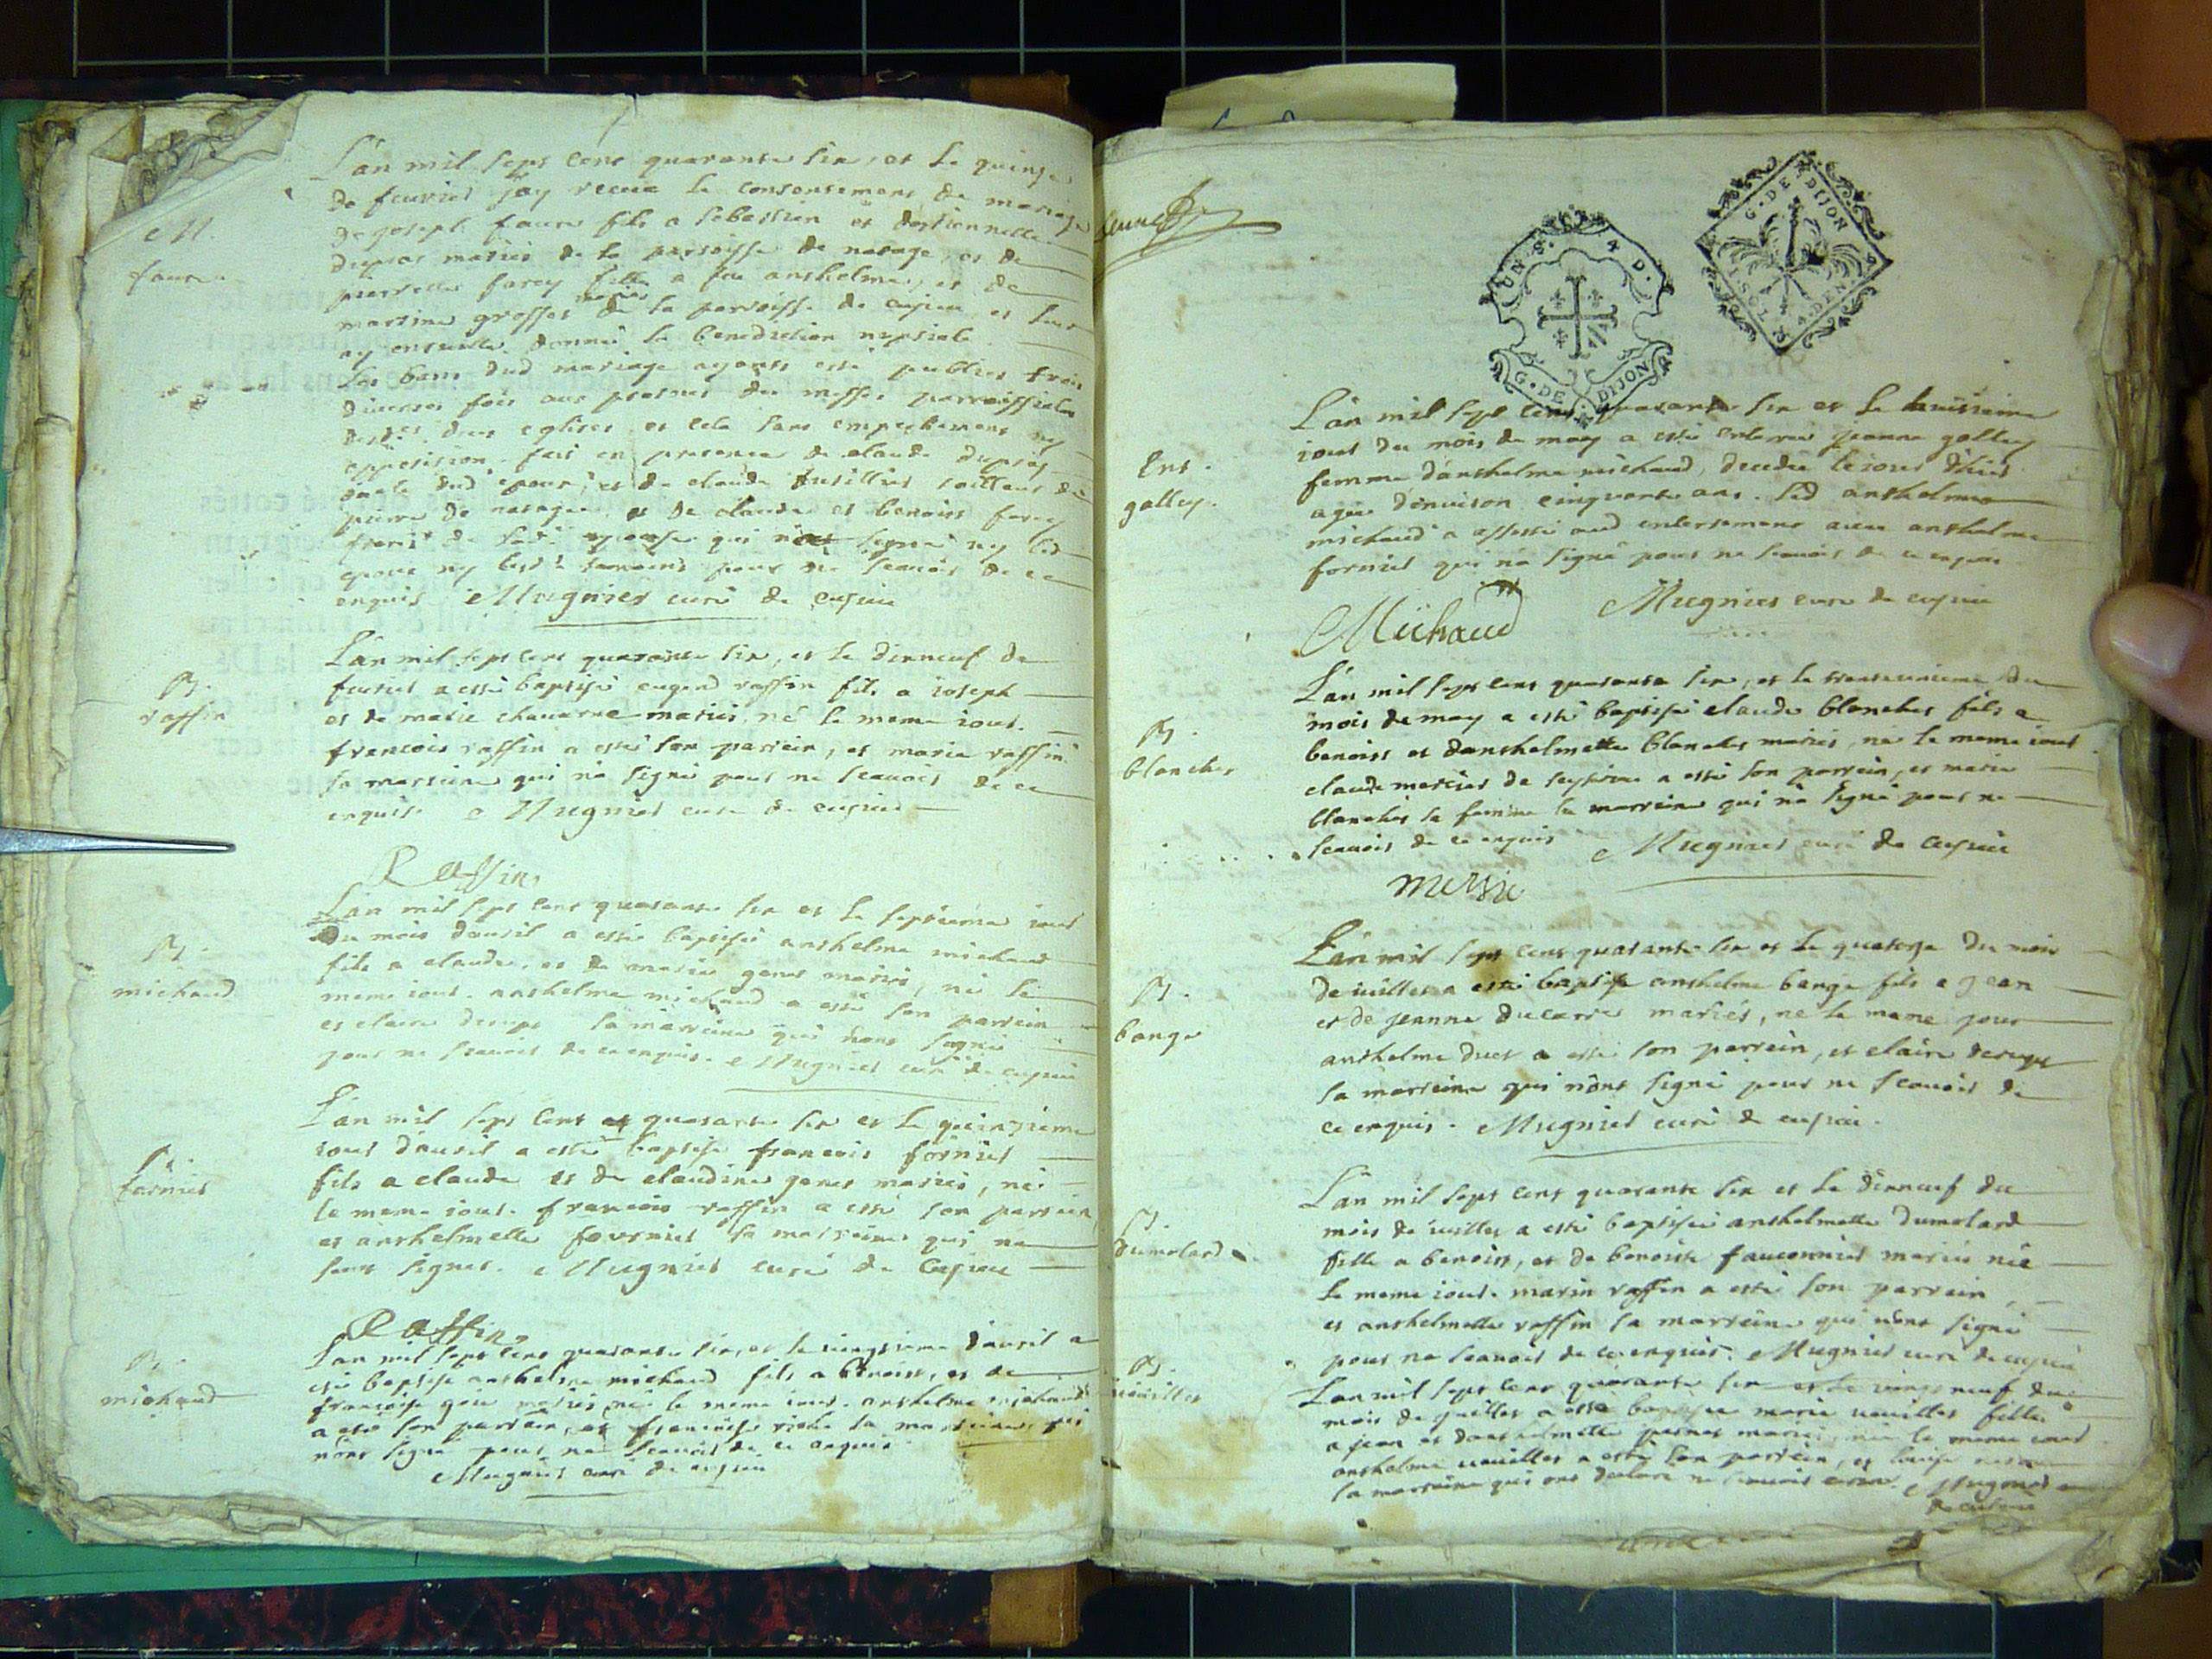 L'an mil sept cent quarante six, et le quinze
de feuvrier j'ay receu le consentement de mariage
de joseph faure fils a sebastien et
mariés de la parroisse de et de
pierrette farcy fille a feu anthelme, et de
martine grosset mariés de la parroisse de cusieu et leur
ay ensuitte donné la benediction nuptiale
les bans dud mariage ayants esté publies trois
diverses fois aux prosnes des messes parroissiales
desd. deux eglises et cela sans empechement ny
opposition. fait en presence de claude
oncle dud epoux, et de claude tailleur de
pierre de et de claude et benoist farcy
de lad. epouse qui n'ont signé ny led
epoux ny lesd. temoins pour ne scavoir de ce
enquis. Mugnier curé de cusieu
M.
faure
L'an mil sept cent quarante six, et le dixneuf de
feuvrier a esté baptisé eugend raffin fils a joseph
et de marie chavanne mariés, né le meme iour.
francois raffin a esté son parrein, et marie raffin
sa marreine qui n'a signé pour ne scavoir de ce
enquise Mugnier curé de cusieu
B.
raffin
Raffin
L'an mil sept cent quarante six et le septieme iour
du mois d'avril a esté baptisé anthelme michaud
fils a claude, et de marie genet mariés, né le
meme iour. anthelme michaud a esté son parrein
et claire derupt sa marreine qui n'ont signé
pour ne scavoir de ce enquis. Mugnier curé de cusieu
B.
michaud
L'an mil sept cent et quarante six et le quinzieme
iour d'avril a esté baptisé francois fornier
fils a claude et de claudine genet mariés, né
le meme iour. francois raffin a esté son parrein
et anthelmette fournier sa marreine qui ne
scait signer. Mugnier curé de Cusieu
B.
fornier
Raffin
L'an mil sept cent quarante six, et le vingtieme d'avril a
esté baptisé anthelme michaud fils a benoist, et de
francoise mariés, né le meme iour. anthelme michaud
a esté son parrein, et francoise sa marreine qui
n'ont signé pour ne scavoir de ce enquis
Mugnier curé de cusieu
B.
michaud
UN S. 4 D.
G. DE DIJON
G. DE DIJON
L'an mil sept cent quarante six et le huitieme
iour du mois de may a esté enterrée jeanne galley
femme d'anthelme michaud, decedée le iour d'hier
agée d'environ cinquante ans. led anthelme
michaud a assisté aud enterrement avec anthelme
fornier qui n'a signé pour ne scavoir de ce enquis
Ent.
galley.
Mugnier curé de cusieu
Michaud
L'an mil sept cent quarante six, et le trenteunieme du
mois de may a esté baptisé claude blanchet fils a
benoist et d'anthelmette blanchet mariés, né le meme iour
claude mercier de a esté son parrein, et marie
blanchet sa femme la marreine qui n'a signé pour ne
scavoir de ce enquis Mugnier curé de cusieu
B.
blanchet
mersie
L'an mil sept cent quarante six et le quatorze du mois
de iuillet a esté baptisé anthelme bange fils a jean
et de jeanne ducarre mariés, né le meme jour
anthelme duet a esté son parrein, et claire derupt
sa marreine qui n'ont signé pour ne scavoir de
ce enquis. Mugnier curé de cusieu.
B.
bange
L'an mil sept cent quarante six et le dixneuf du
mois de iuillet a esté baptisée anthelmette dumolard
fille a benoist, et de benoiste fauconnier mariés née
le meme iour. marin raffin a esté son parrein,
et anthelmette raffin sa marreine qui n'ont signé
pour ne scavoir de ce enquis. Mugnier curé de cusieu
B.
dumolard
L'an mil sept cent quarante six et le vingt neuf du
mois de juillet a esté baptisée marie vevillet fille
a jean et d'anthelmette mariés, née le meme iour
anthelme vevillet a esté son parrein, et
sa marreine qui ont declaré ne scavoir Mugnier curé
de cusieu
B.
vevillet